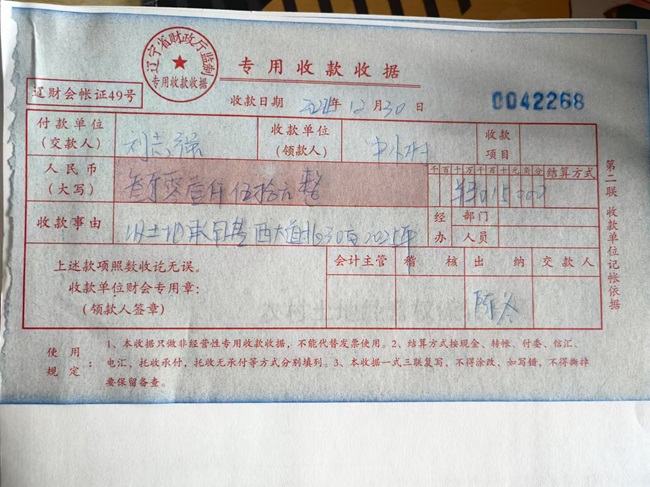 辽宁省财政厅监制
专用收款收据
专用收款收据
辽财会帐证49号
收款日期 2024年12月30日
0042268
付款单位
(交款人)
刘志强
收款单位
(领款人)
中小村
收款
项目
人民币
(大写)
千百十万千百十元角分
结算方式
收款事由
西大 30亩 2025年
经办
部门
人员
上述款项照数收讫无误。
收款单位财会专用章:
(领款人签章)
会计主管
稽核
出纳
交款人
陈冬
第二联 收款单位记帐依据
使用规定:
1、本收据只做非经营性专用收款收据,不能代替发票使用。2、结算方式按现金、转帐、付委、信汇、
电汇、托收承付,托收无承付等方式分别填列。3、本收据一式三联复写,不得涂改,如写错,不得撕掉
要保留备查。